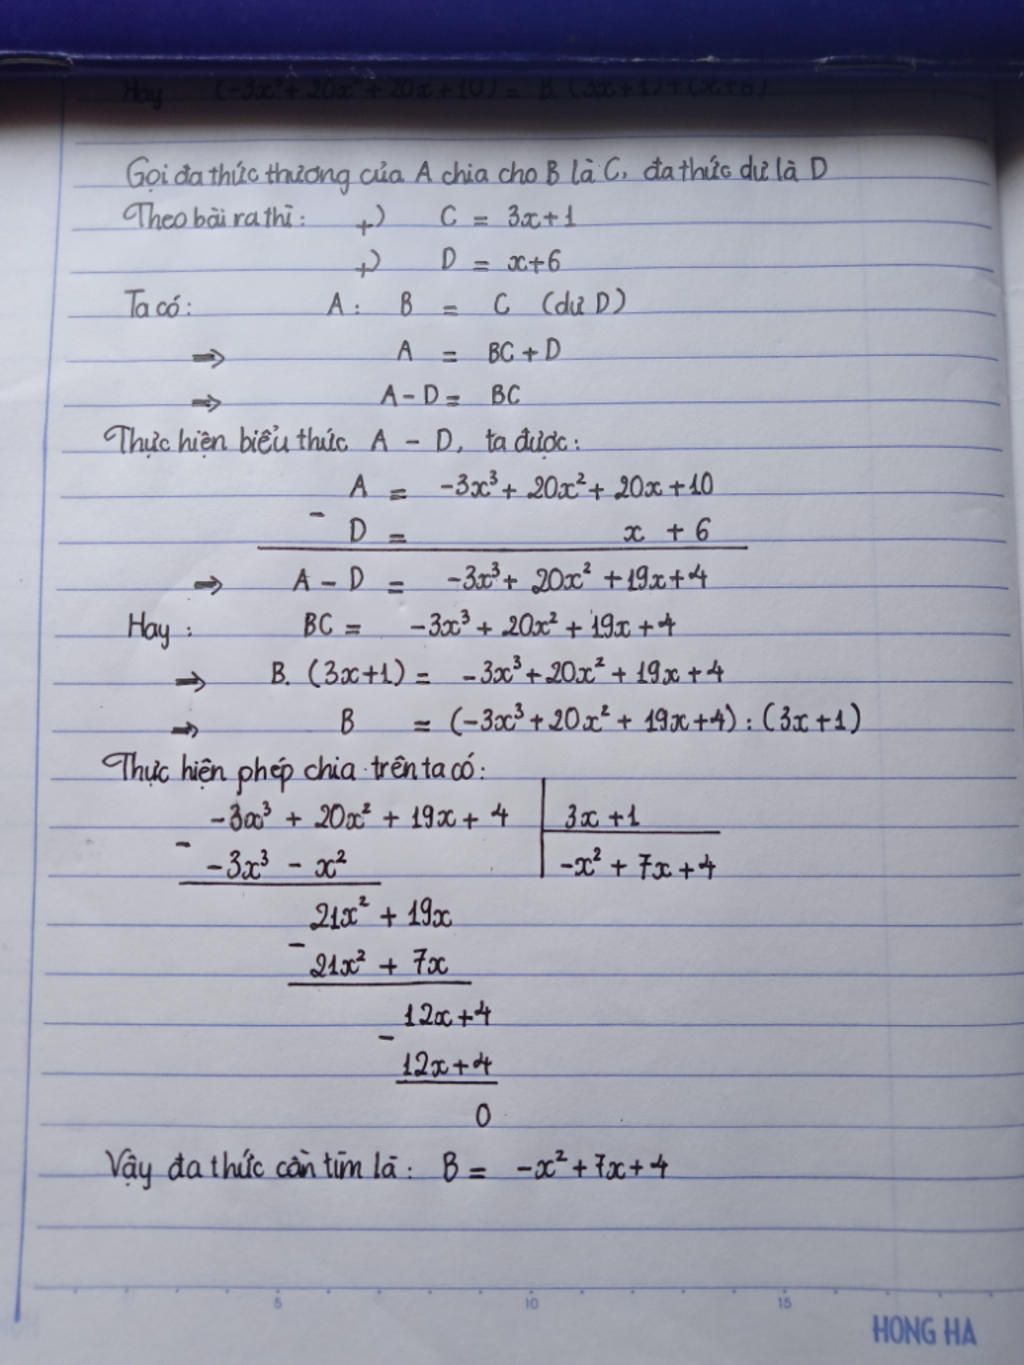 Hay (-3x³ + 20x² + 20x + 10) = B. (3x+1) + (x+6)
Gọi đa thức thương của A chia cho B là C, đa thức dư là D
Theo bài ra thì: +) C = 3x+1
+) D = x+6
Ta có: A : B = C (dư D)
⇒ A = BC + D
⇒ A - D = BC
Thực hiện biểu thức A - D, ta được:
A = -3x³ + 20x² + 20x + 10
- D = x + 6
⇒ A - D = -3x³ + 20x² + 19x + 4
Hay : BC = -3x³ + 20x² + 19x + 4
⇒ B. (3x+1) = -3x³ + 20x² + 19x + 4
⇒ B = (-3x³ + 20x² + 19x + 4) : (3x+1)
Thực hiện phép chia trên ta có:
-3x³ + 20x² + 19x + 4 3x + 1
- -3x³ - x² -x² + 7x + 4
21x² + 19x
- 21x² + 7x
12x + 4
- 12x + 4
0
Vậy đa thức cần tìm là : B = -x² + 7x + 4
5 10 15
HONG HA